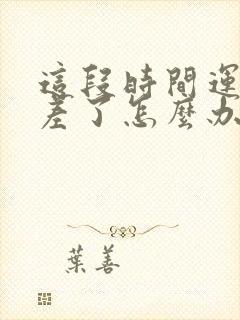 這段時間運
差了怎麼办
葉善